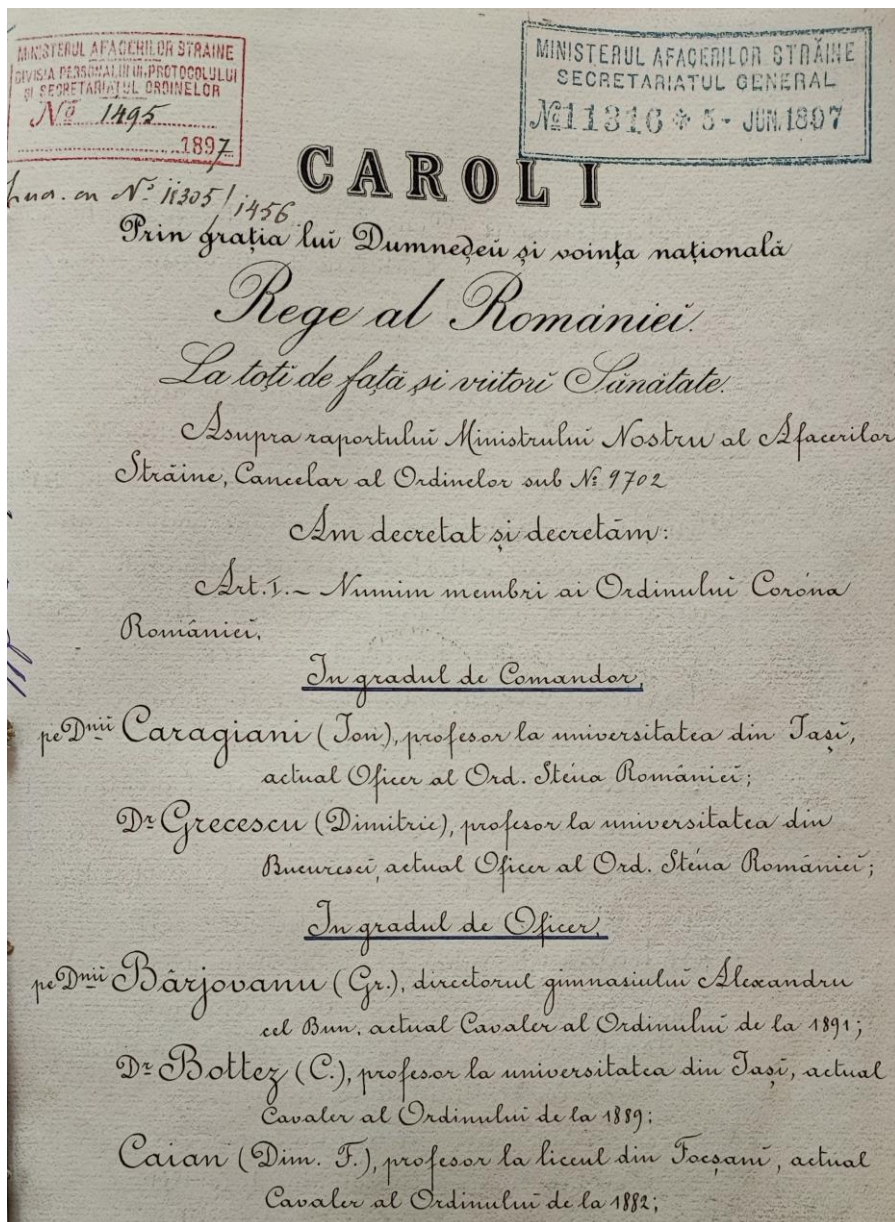 MINISTERUL AFACERILOR STRAINE
DIVISIA PERSONALULUI, PROTOCOLULUI
ȘI SECRETARIATUL ORDINELOR
No 1495
1897
MINISTERUL AFACERILOR STRĂINE
SECRETARIATUL GENERAL
No 11316 5 - JUN. 1897
CAROL I
on No 11305/1456
Prin grația lui Dumneḑeŭ și voința națională
Rege al Romăniei.
La toți de față și viitori Sănătate.
Asupra raportului Ministrului Nostru al Afacerilor
Străine, Cancelar al Ordinelor sub No 9702
Am decretat și decretăm:
Art. I. — Numim membri ai Ordinului Coróna
Romăniei,
In gradul de Comandor,
pe Dnii Caragiani (Ion), profesor la universitatea din Iași,
actual Oficer al Ord. Steua Romăniei;
Dr Grecescu (Dimitrie), profesor la universitatea din
Bucuresci, actual Oficer al Ord. Steua Romăniei;
In gradul de Oficer,
pe Dnii Bârjovanu (Gr.), directorul gimnasiului Alexandru
cel Bun, actual Cavaler al Ordinului de la 1891;
Dr Bottez (C.), profesor la universitatea din Iași, actual
Cavaler al Ordinului de la 1889;
Caian (Dim. F.), profesor la liceul din Focșani, actual
Cavaler al Ordinului de la 1882;